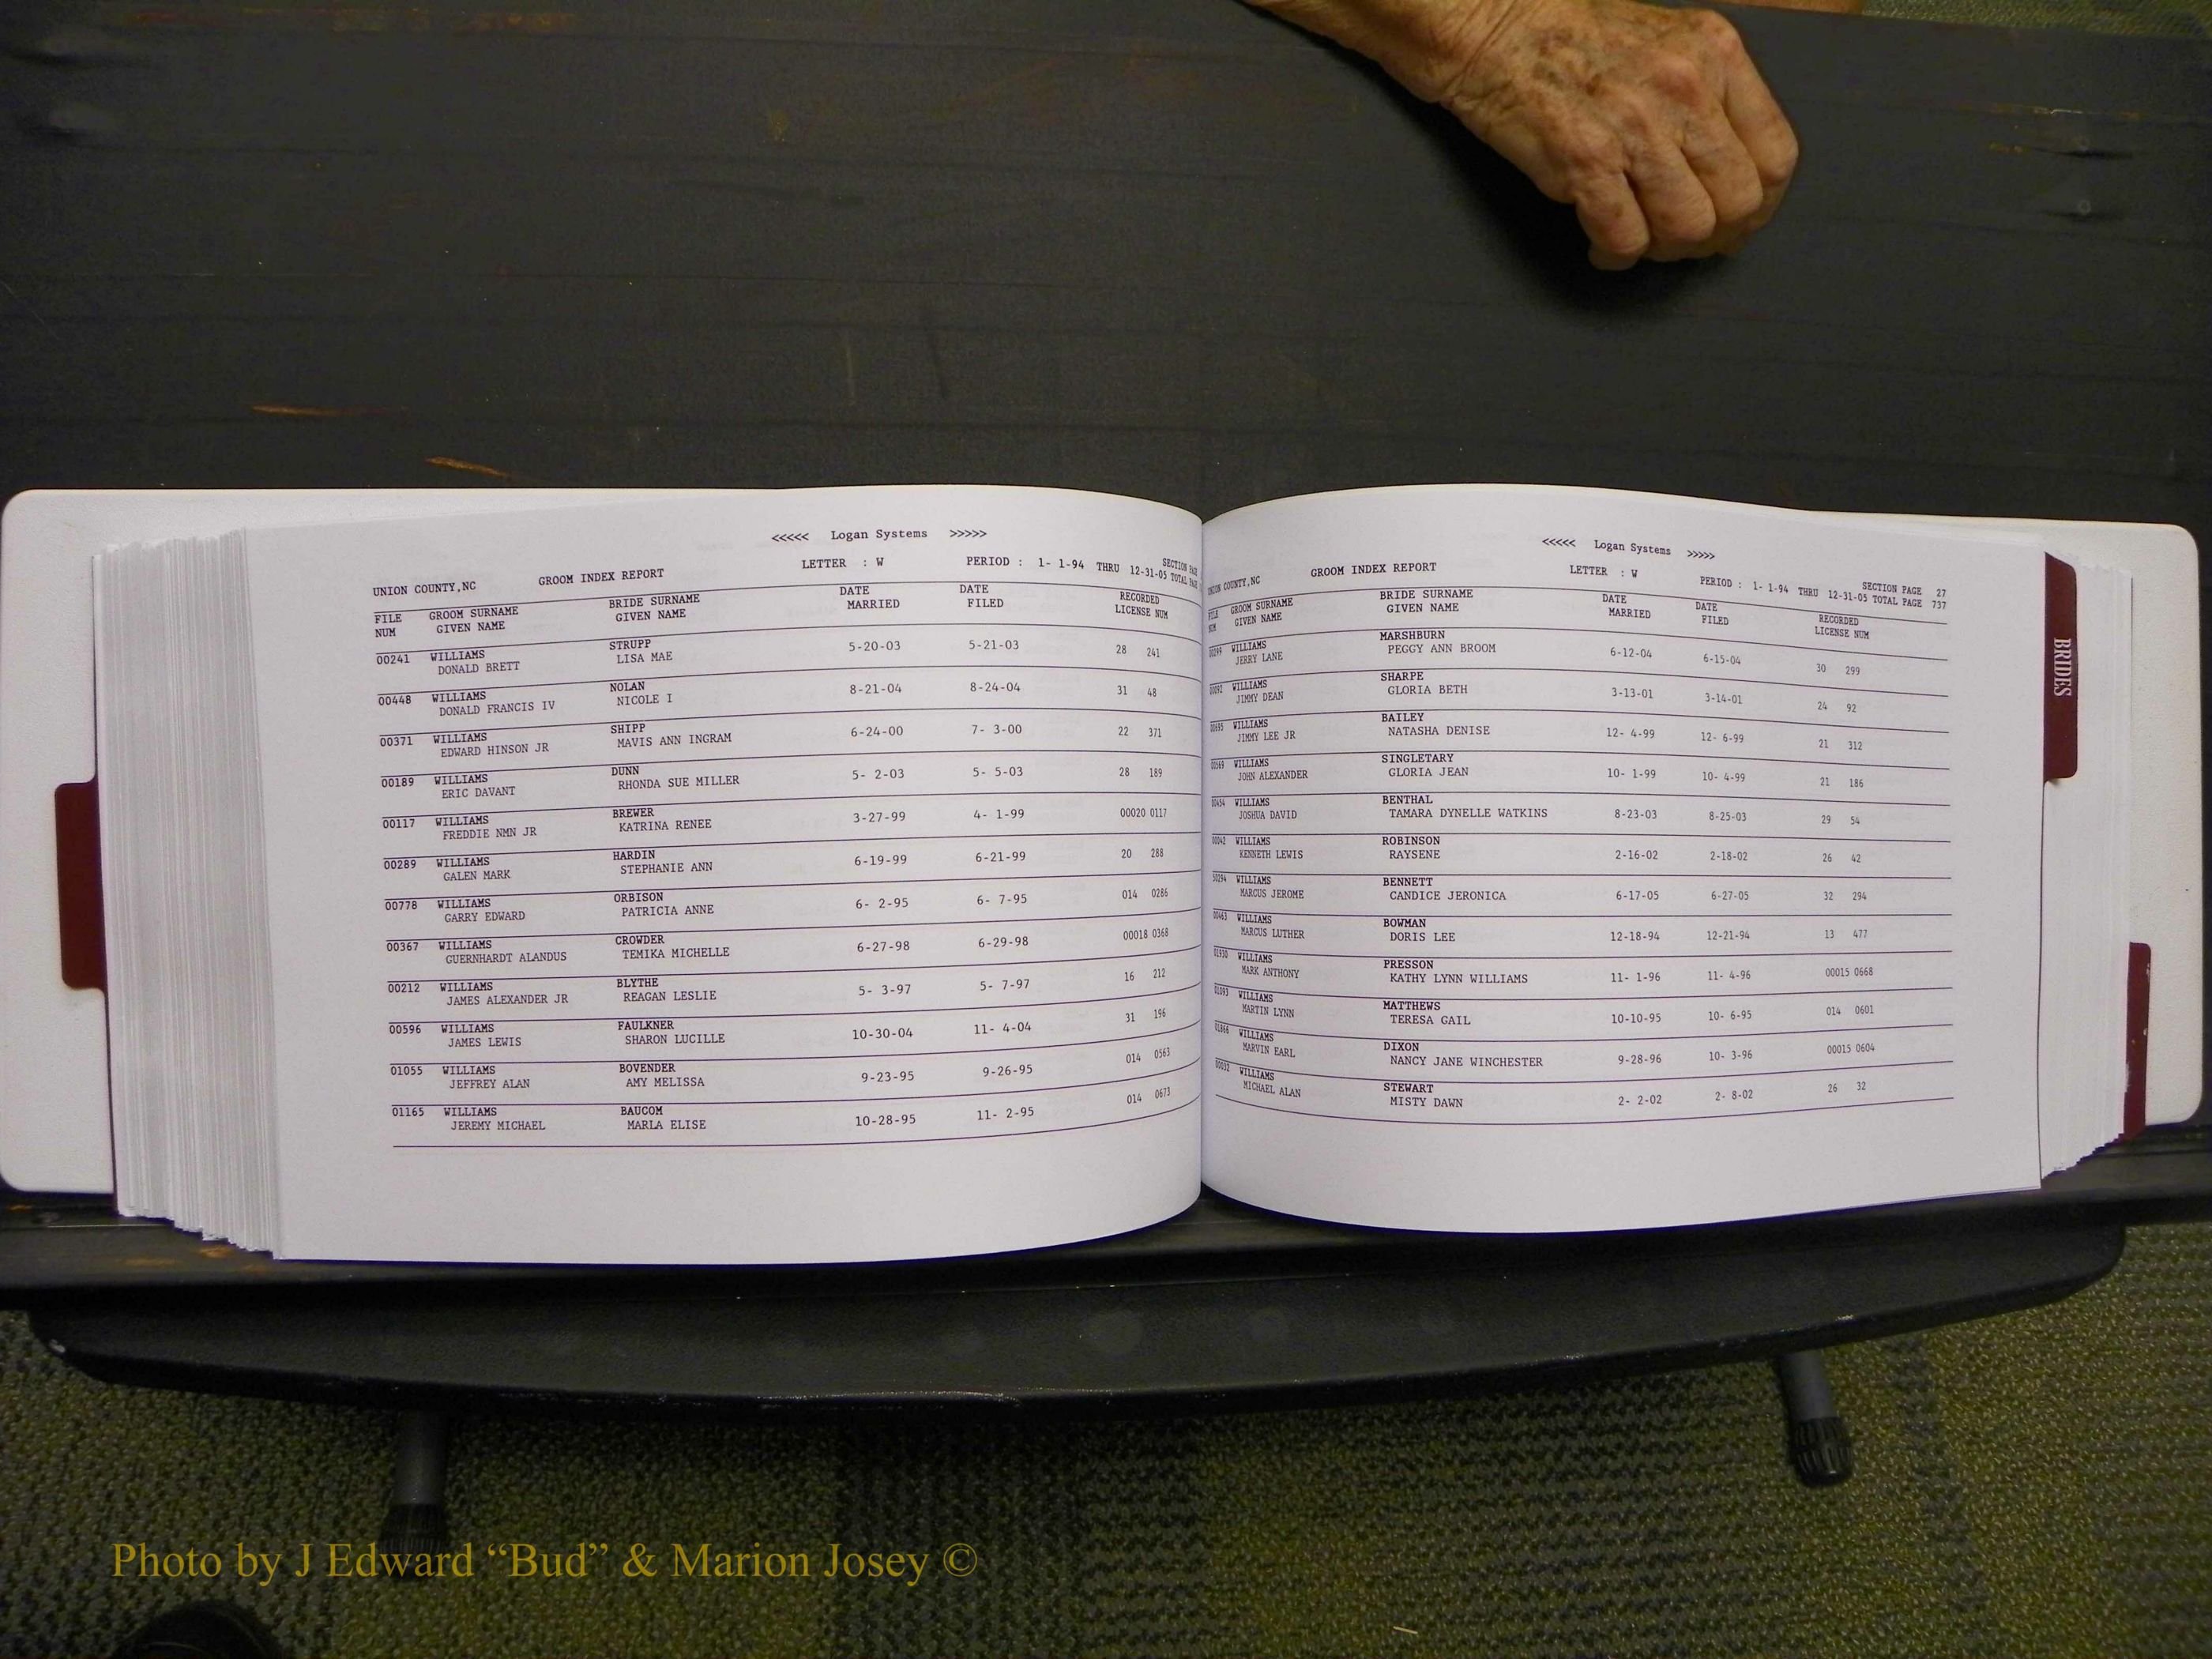 <<<<< Logan Systems >>>>>
UNION COUNTY,NC GROOM INDEX REPORT LETTER : W PERIOD : 1- 1-94 THRU 12-31-05 SECTION PAGE TOTAL
FILE NUM GROOM SURNAME GIVEN NAME BRIDE SURNAME GIVEN NAME DATE MARRIED DATE FILED RECORDED LICENSE NUM
00241 WILLIAMS STRUPP 5-20-03 5-21-03 28 241
DONALD BRETT LISA MAE
00448 WILLIAMS NOLAN 8-21-04 8-24-04 31 48
DONALD FRANCIS IV NICOLE I
00371 WILLIAMS SHIPP 6-24-00 7- 3-00 22 371
EDWARD HINSON JR MAVIS ANN INGRAM
00189 WILLIAMS DUNN 5- 2-03 5- 5-03 28 189
ERIC DAVANT RHONDA SUE MILLER
00117 WILLIAMS BREWER 3-27-99 4- 1-99 00020 0117
FREDDIE NMN JR KATRINA RENEE
00289 WILLIAMS HARDIN 6-19-99 6-21-99 20 288
GALEN MARK STEPHANIE ANN
00778 WILLIAMS ORBISON 6- 2-95 6- 7-95 014 0286
GARRY EDWARD PATRICIA ANNE
00367 WILLIAMS CROWDER 6-27-98 6-29-98 00018 0368
GUERNHARDT ALANDUS TEMIKA MICHELLE
00212 WILLIAMS BLYTHE 5- 3-97 5- 7-97 16 212
JAMES ALEXANDER JR REAGAN LESLIE
00596 WILLIAMS FAULKNER 10-30-04 11- 4-04 31 196
JAMES LEWIS SHARON LUCILLE
01055 WILLIAMS BOVENDER 9-23-95 9-26-95 014 0563
JEFFREY ALAN AMY MELISSA
01165 WILLIAMS BAUCOM 10-28-95 11- 2-95 014 0673
JEREMY MICHAEL MARLA ELISE
<<<<< Logan Systems >>>>>
UNION COUNTY,NC GROOM INDEX REPORT LETTER : W PERIOD : 1- 1-94 THRU 12-31-05 SECTION PAGE 27 TOTAL PAGE 737
FILE NUM GROOM SURNAME GIVEN NAME BRIDE SURNAME GIVEN NAME DATE MARRIED DATE FILED RECORDED LICENSE NUM
00299 WILLIAMS MARSHBURN 6-12-04 6-15-04 30 299
JERRY LANE PEGGY ANN BROOM
00092 WILLIAMS SHARPE 3-13-01 3-14-01 24 92
JIMMY DEAN GLORIA BETH
WILLIAMS BAILEY 12- 4-99 12- 6-99 21 312
JIMMY LEE JR NATASHA DENISE
00569 WILLIAMS SINGLETARY 10- 1-99 10- 4-99 21 186
JOHN ALEXANDER GLORIA JEAN
00454 WILLIAMS BENTHAL 8-23-03 8-25-03 29 54
JOSHUA DAVID TAMARA DYNELLE WATKINS
00042 WILLIAMS ROBINSON 2-16-02 2-18-02 26 42
KENNETH LEWIS RAYSENE
WILLIAMS BENNETT 6-17-05 6-27-05 32 294
MARCUS JEROME CANDICE JERONICA
00463 WILLIAMS BOWMAN 12-18-94 12-21-94 13 477
MARCUS LUTHER DORIS LEE
01930 WILLIAMS PRESSON 11- 1-96 11- 4-96 00015 0668
MARK ANTHONY KATHY LYNN WILLIAMS
01093 WILLIAMS MATTHEWS 10-10-95 10- 6-95 014 0601
MARTIN LYNN TERESA GAIL
01866 WILLIAMS DIXON 9-28-96 10- 3-96 00015 0604
MARVIN EARL NANCY JANE WINCHESTER
00032 WILLIAMS STEWART 2- 2-02 2- 8-02 26 32
MICHAEL ALAN MISTY DAWN
BRIDES
Photo by J Edward “Bud” & Marion Josey ©